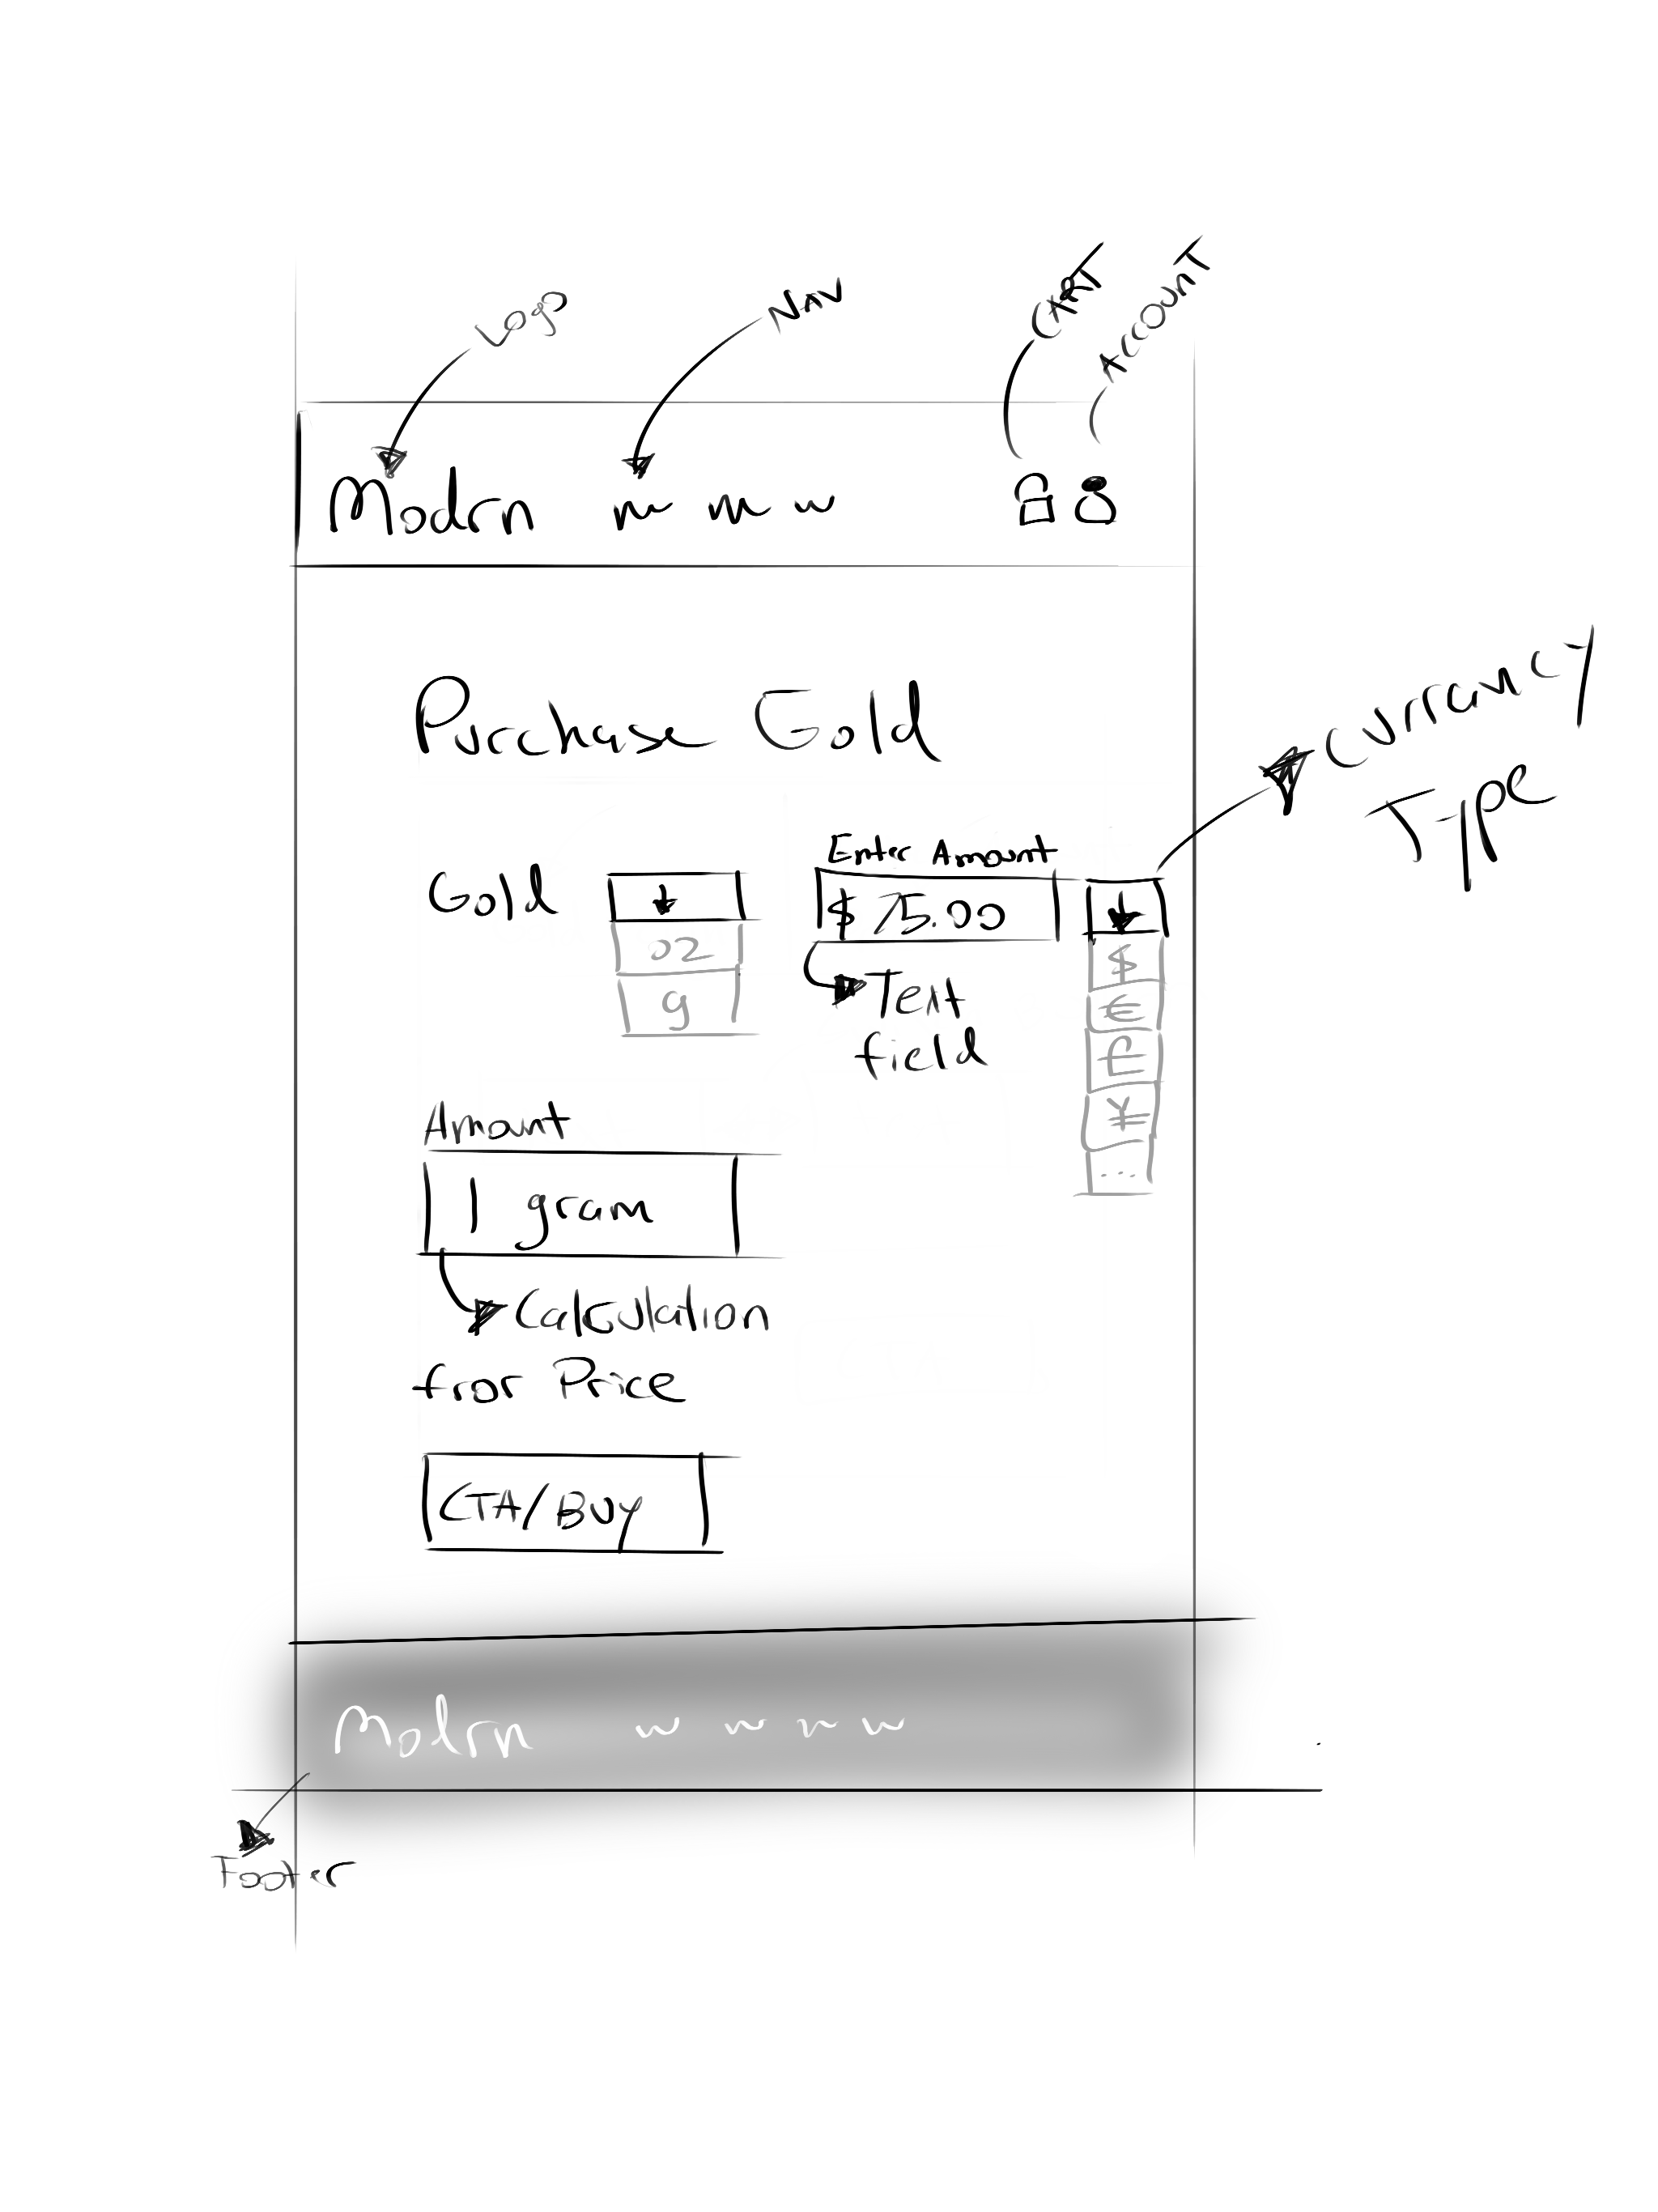 Logo
NAV
CART
ACCOUNT
Modrn
Purchase Gold
Currancy
Type
Enter Amount
Gold
$ 75.00
oz
g
Text
field
$
€
₤
¥
...
Amount
1 gram
Calculation
fror Price
CTA/BUY
Modrn
Footer